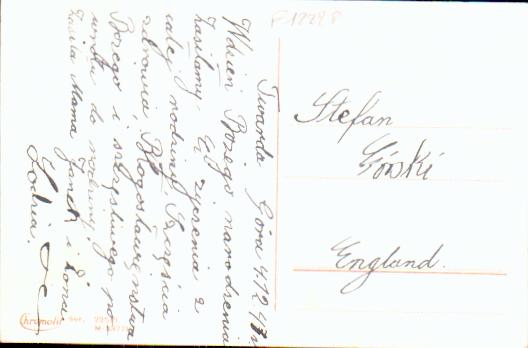 F12298
Twarda Góra 4/12 47 r.
Wdzień Bożego narodzenia
zasilamy Ci życzenia z
całej rodziny Szczęścia
zdrowia Błogosławieństwa
Bożego i szczęśliwego po
wrotu do rodziny
zasila Mama Janek i żona
Zofia.
Stefan
Górski
England.
Chromolit Ser.